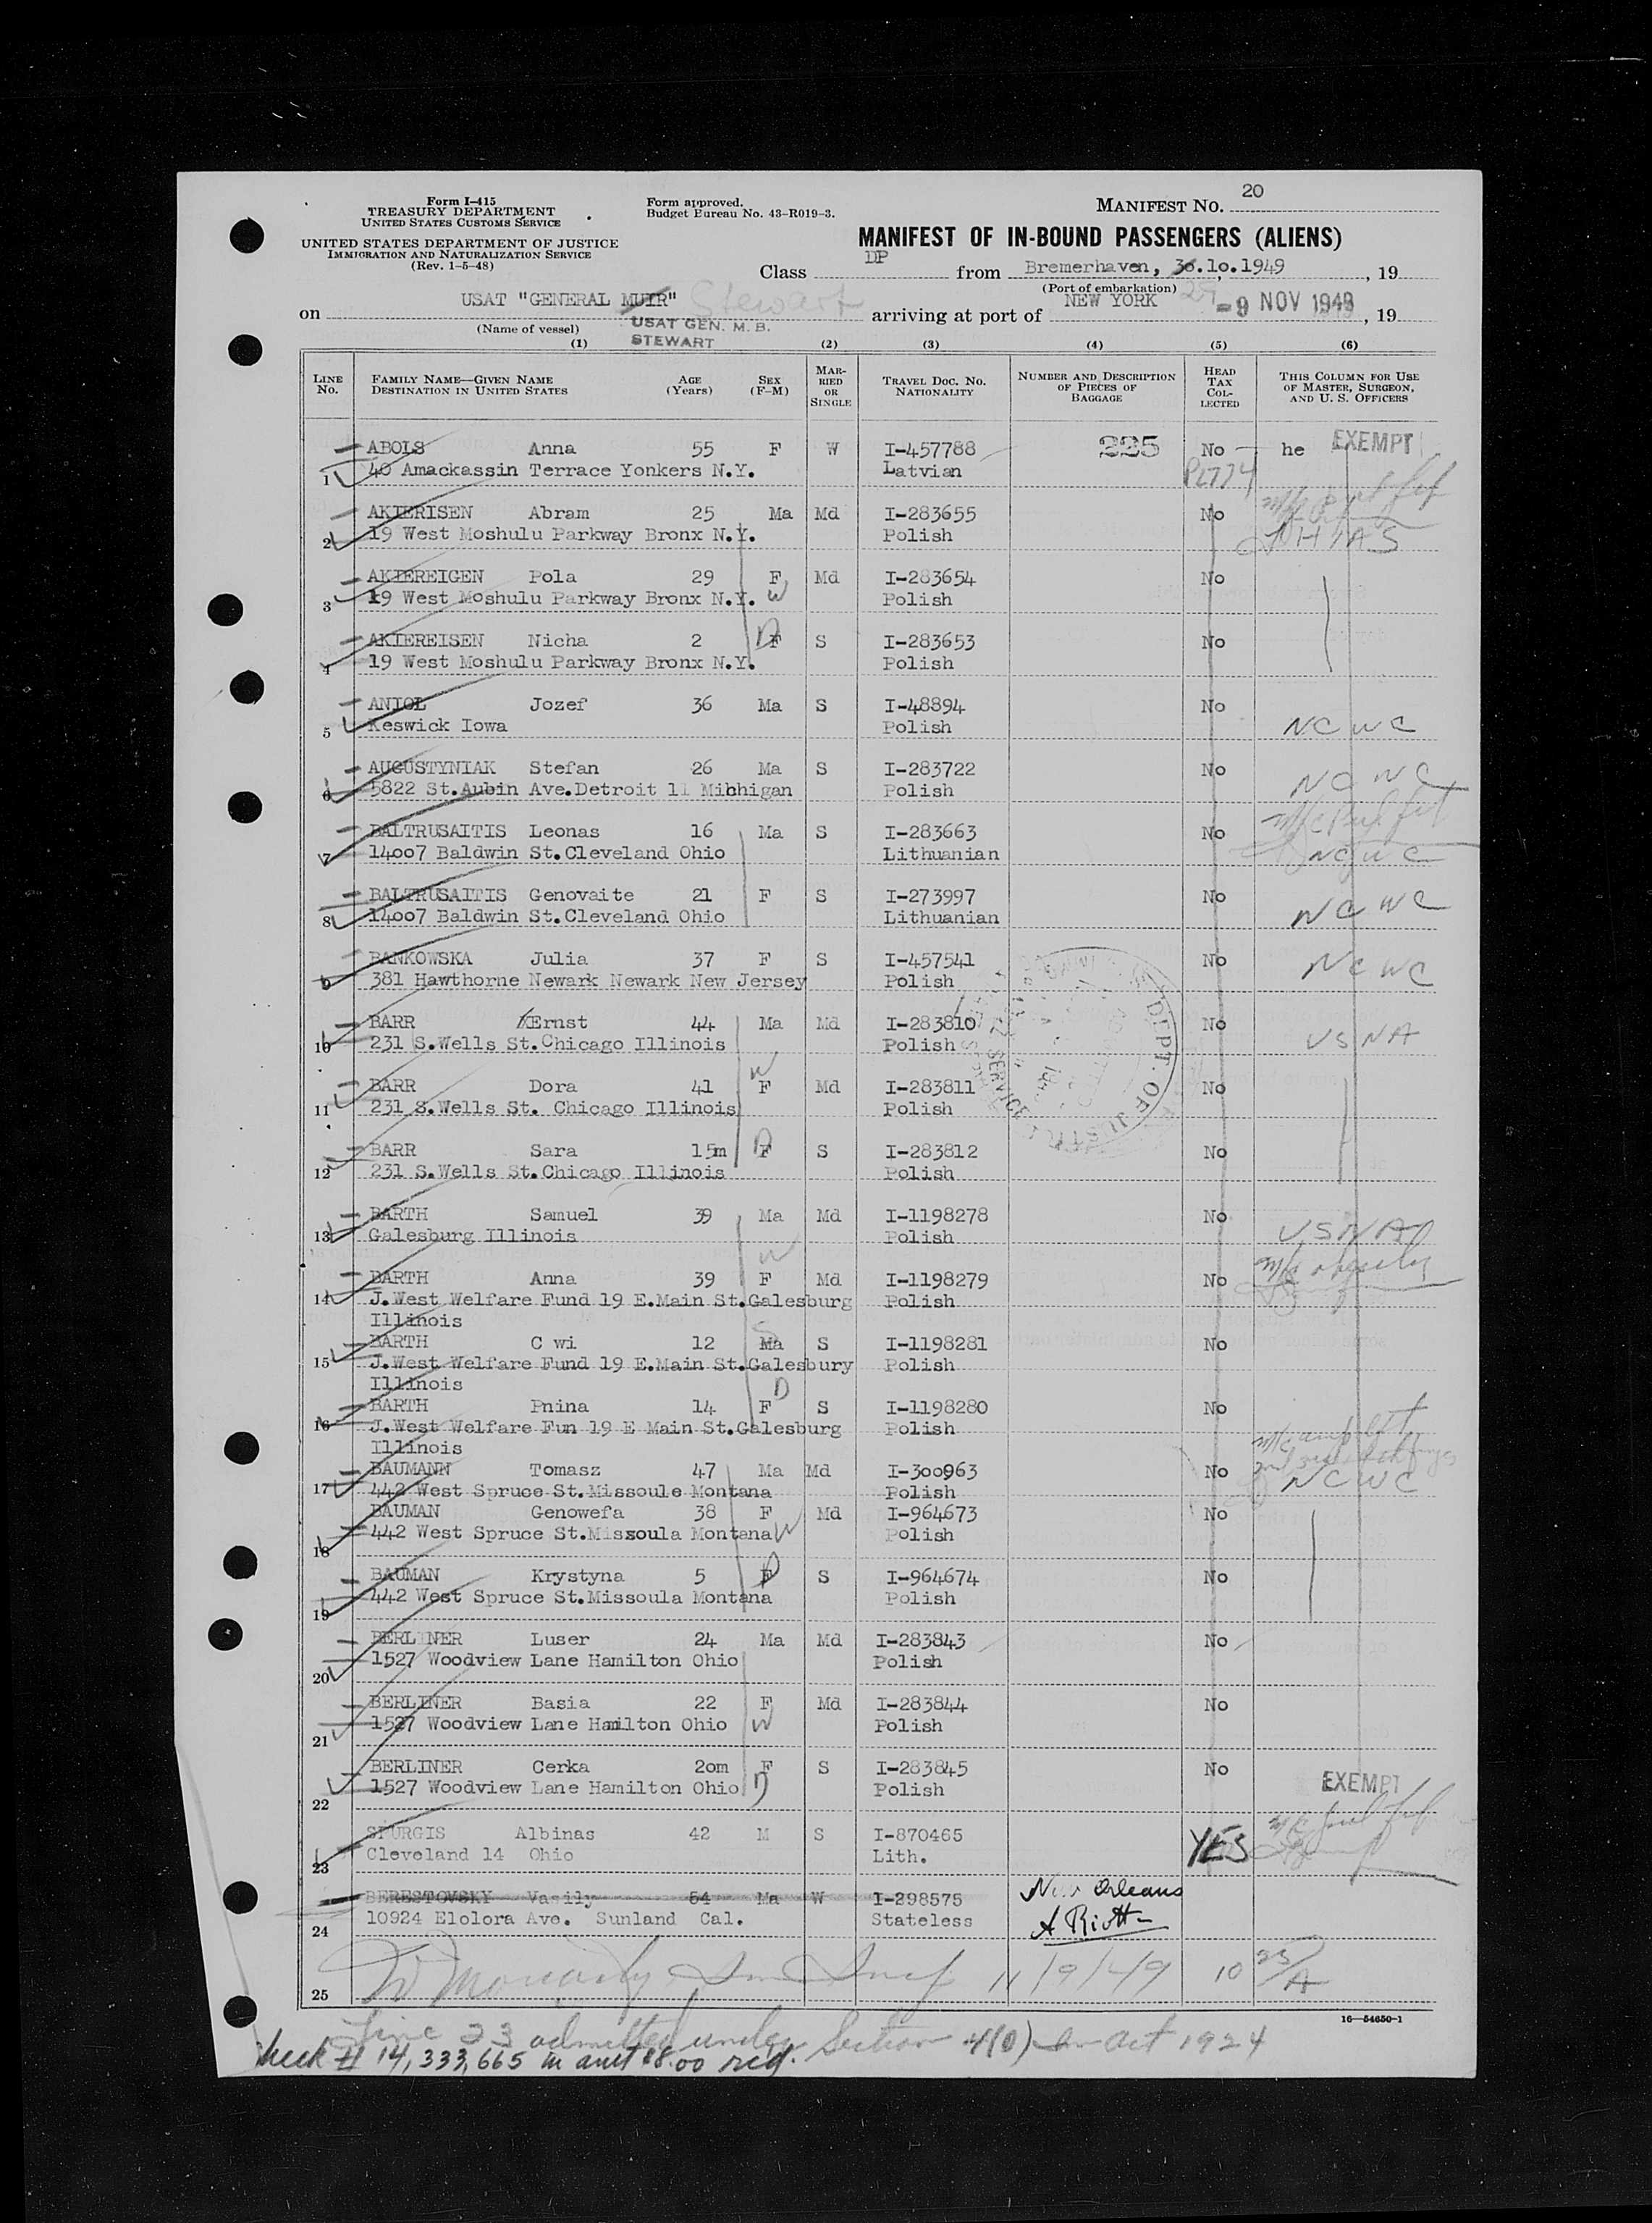 Form I-415
TREASURY DEPARTMENT
UNITED STATES CUSTOMS SERVICE
UNITED STATES DEPARTMENT OF JUSTICE
IMMIGRATION AND NATURALIZATION SERVICE
(Rev. 1-5-48)
Form approved.
Budget Bureau No. 43-R019-3.
MANIFEST NO. 20
MANIFEST OF IN-BOUND PASSENGERS (ALIENS)
Class DP from Bremerhaven, 30.10.1949, 19
(Port of embarkation) 29
on USAT "GENERAL MUIR" Stewart arriving at port of NEW YORK -9 NOV 1949, 19
(Name of vessel) USAT GEN. M. B. STEWART
(1) (2) (3) (4) (5) (6)
LINE No. FAMILY NAME—GIVEN NAME DESTINATION IN UNITED STATES AGE (Years) SEX (F-M) MARRIED OR SINGLE TRAVEL DOC. NO. NATIONALITY NUMBER AND DESCRIPTION OF PIECES OF BAGGAGE HEAD TAX COLLECTED THIS COLUMN FOR USE OF MASTER, SURGEON, AND U. S. OFFICERS
ABOLS Anna 55 F W I-457788 225 No he EXEMPT
1 40 Amackassin Terrace Yonkers N.Y. Latvian PL774
AKIERISEN Abram 25 Ma Md I-283655 No
2 19 West Moshulu Parkway Bronx N.Y. Polish HIAS
AKIEREIGEN Pola 29 F W Md I-283654 No
3 19 West Moshulu Parkway Bronx N.Y. Polish
AKIEREISEN Nicha 2 F D S I-283653 No
4 19 West Moshulu Parkway Bronx N.Y. Polish
ANIOL Jozef 36 Ma S I-48894 No
5 Keswick Iowa Polish NCWC
AUGUSTYNIAK Stefan 26 Ma S I-283722 No
6 5822 St.Aubin Ave.Detroit 11 Mibhigan Polish NCWC
BALTRUSAITIS Leonas 16 Ma S I-283663 No
7 14oo7 Baldwin St.Cleveland Ohio Lithuanian NCWC
BALTRUSAITIS Genovaite 21 F S I-273997 No
8 14oo7 Baldwin St.Cleveland Ohio Lithuanian NCWC
BANKOWSKA Julia 37 F S I-457541 No
9 381 Hawthorne Newark Newark New Jersey Polish NCWC
BARR Ernst 44 Ma Md I-283810 No
10 231 S.Wells St.Chicago Illinois Polish USNA
BARR Dora 41 W F Md I-283811 No
11 231 S.Wells St. Chicago Illinois Polish
BARR Sara 15m D F S I-283812 No
12 231 S.Wells St.Chicago Illinois Polish
BARTH Samuel 39 Ma Md I-1198278 No
13 Galesburg Illinois Polish USNA
BARTH Anna 39 W F Md I-1198279 No
14 J.West Welfare Fund 19 E.Main St.Galesburg Polish
Illinois
BARTH C wi 12 S Ma S I-1198281 No
15 J.West Welfare Fund 19 E.Main St.Galesbury Polish
Illinois
BARTH Pnina 14 F D S I-1198280 No
16 J.West Welfare Fun 19 E Main St.Galesburg Polish
Illinois
BAUMANN Tomasz 47 Ma Md I-3oo963 No
17 442 West Spruce St.Missoule Montana Polish NCWC
BAUMAN Genowefa 38 F Md I-964673 No
18 442 West Spruce St.Missoula Montana W Polish
BAUMAN Krystyna 5 F D S I-964674 No
19 442 West Spruce St.Missoula Montana Polish
BERLINER Luser 24 Ma Md I-283843 No
20 1527 Woodview Lane Hamilton Ohio Polish
BERLINER Basia 22 F Md I-283844 No
21 1527 Woodview Lane Hamilton Ohio W Polish
BERLINER Cerka 2om F S I-283845 No
22 1527 Woodview Lane Hamilton Ohio D Polish EXEMPT
SPURGIS Albinas 42 M S I-870465 YES
23 Cleveland 14 Ohio Lith.
BERESTOVSKY Vasily 54 Ma W I-298575 New Orleans
24 10924 Elolora Ave. Sunland Cal. Stateless
25 11/9/49 10 23/A
16—54650-1
Line 23 admitted under Section 4(D) Im Act 1924
heck # 14,333,665 in amt $8.00 recd.
DEPT. OF JUSTICE
SERVICE